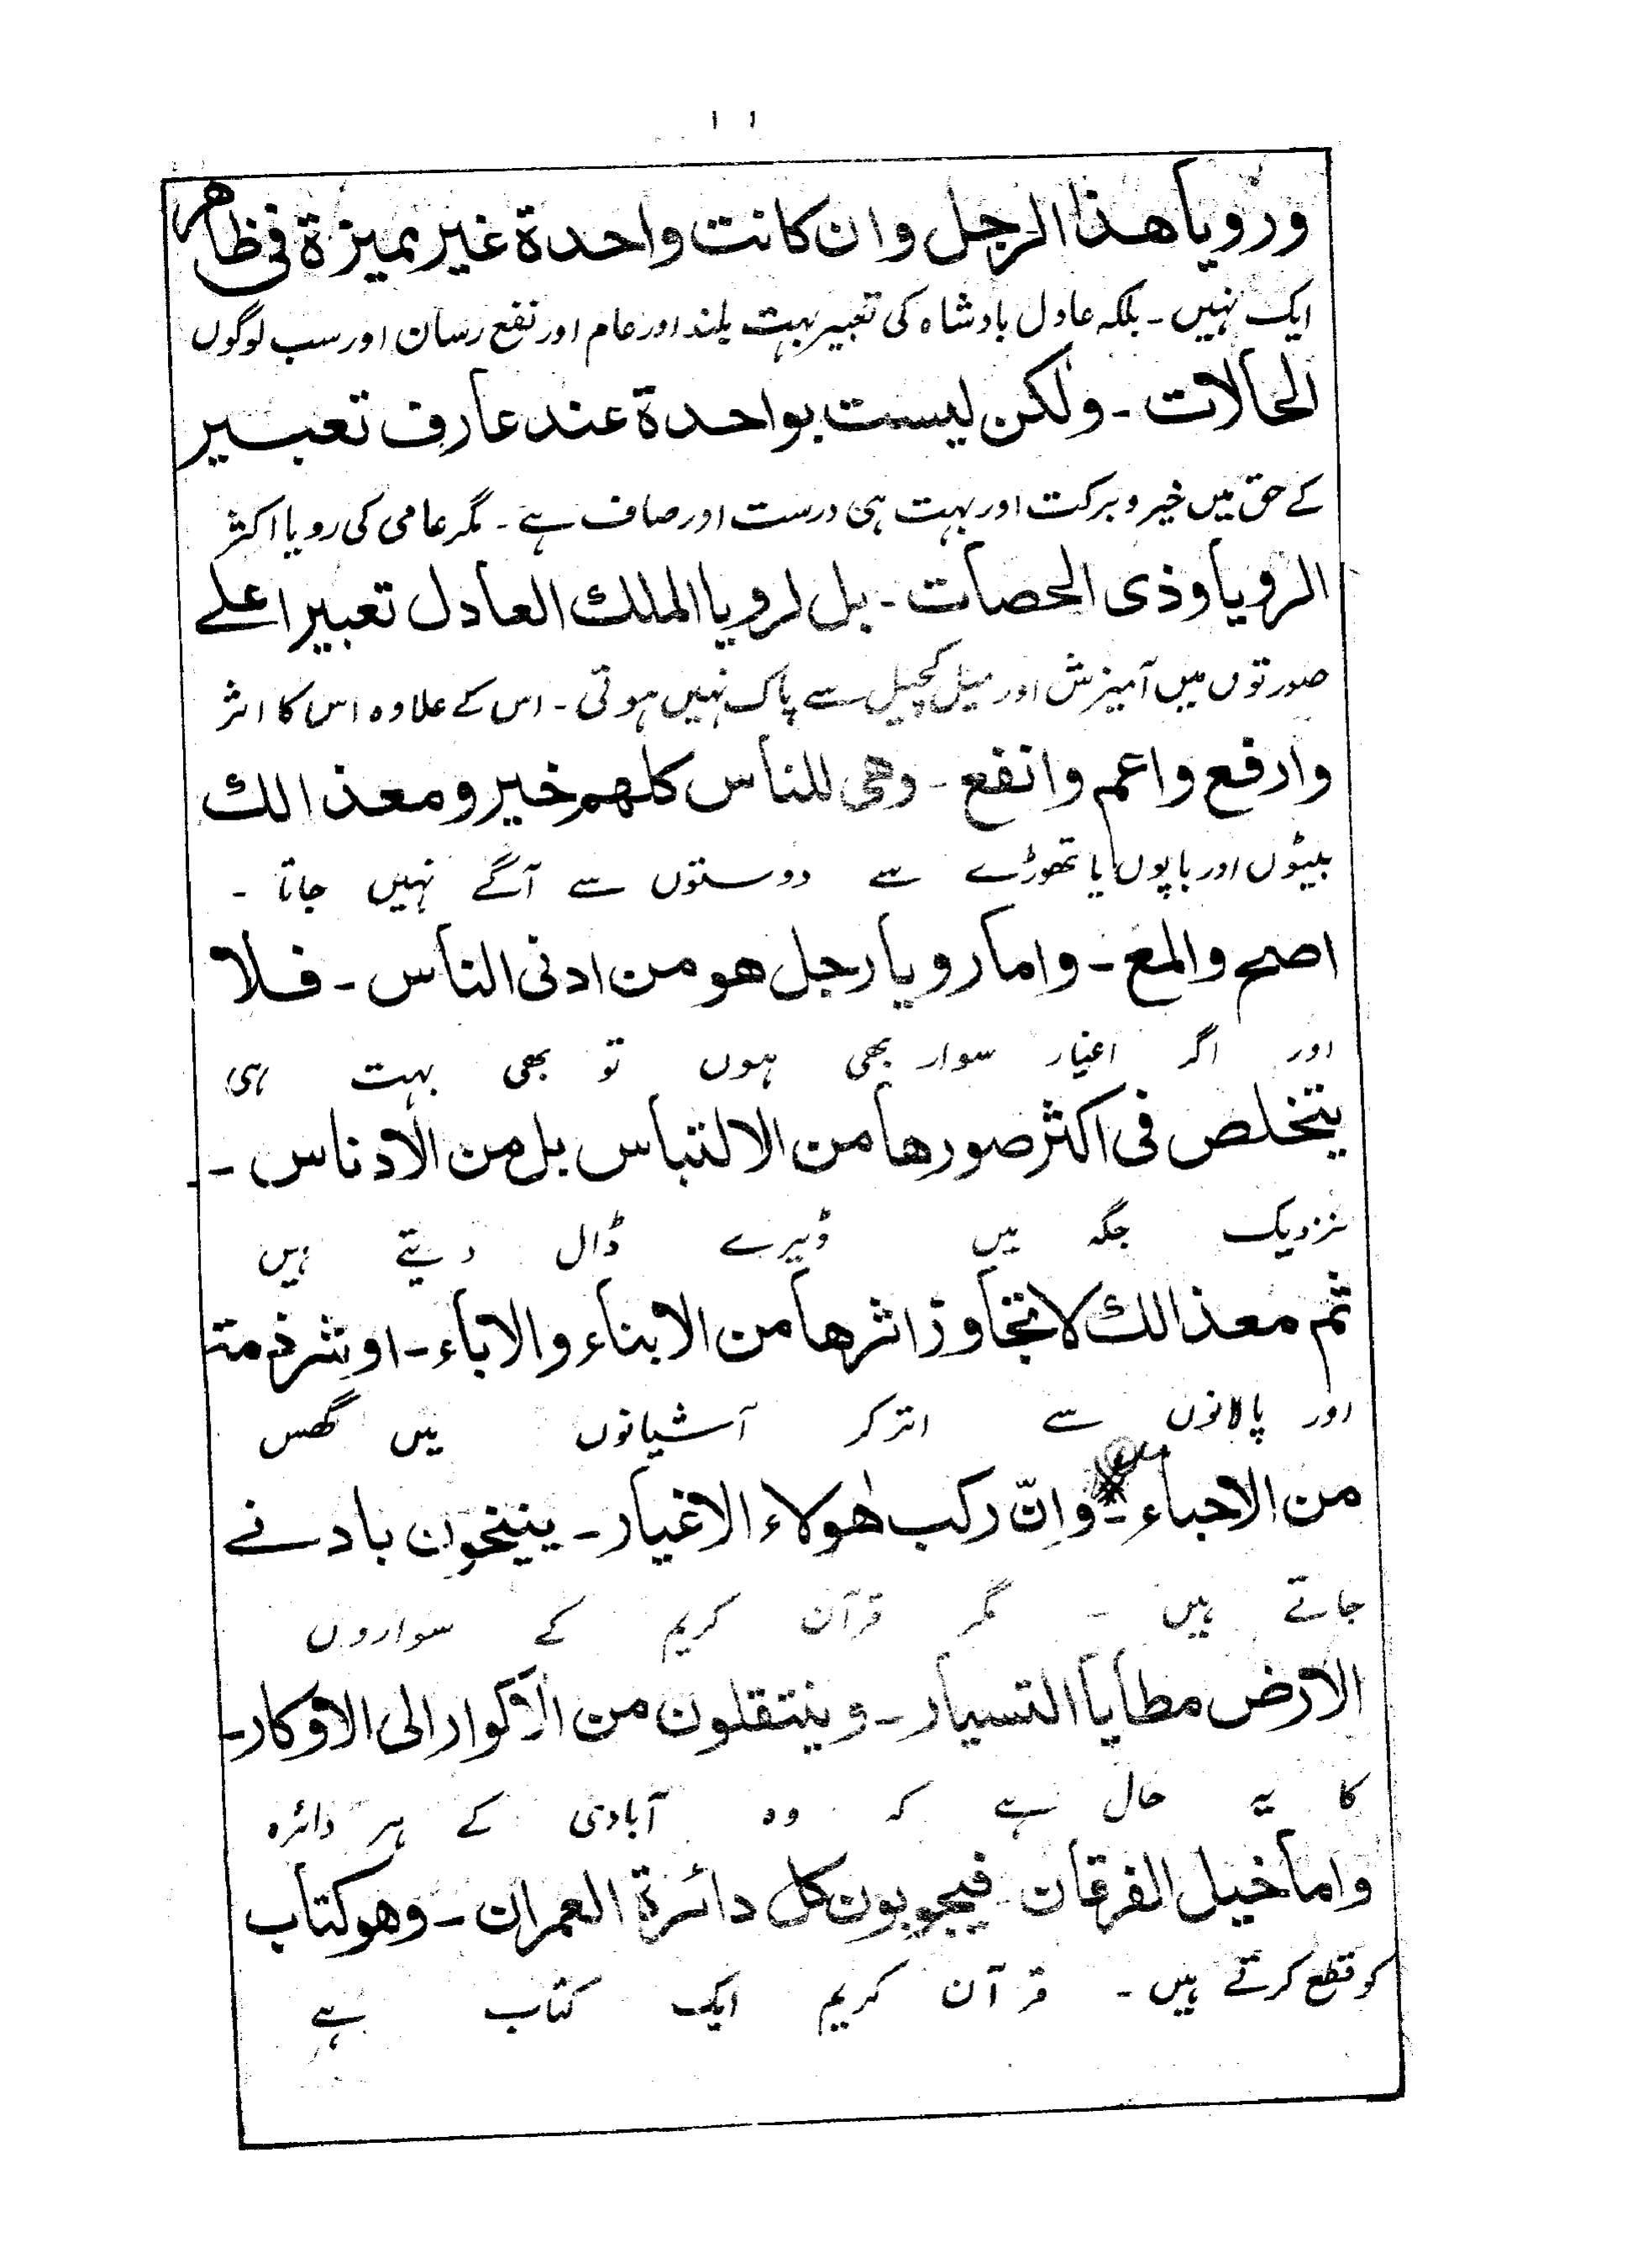 ۱۱
ورویا هذا الرجل وان کانت واحدة غیر ممیزة فی ظاهر
ایک نہیں ۔ بلکہ عادل بادشاہ کی تعبیر بہت بلند اور عام اور نفع رسان اور سب لوگوں
الحالات ۔ ولکن لیست بواحدة عند عارف تعبیر
کے حق میں خیر و برکت اور بہت ہی درست اور صاف ہے ۔ مگر عامی کی رویا اکثر
الرویا وذی الحصات ۔ بل لرویا الملک العادل تعبیر اعلے
صورتوں میں آمیزش اور میل کچیل سے پاک نہیں ہوتی ۔ اس کے علاوہ اس کا اثر
وارفع واعم وانفع ۔ وهی للناس کلهم خیر ومعذالک
بیٹوں اور باپوں یا تھوڑے سے دوستوں سے آگے نہیں جاتا ۔
اصح والمع ۔ واما رویا رجل هو من ادنی الناس ۔ فلا
اور اگر اغیار سوار بھی ہوں تو بھی بہت ہی
یتخلص فی اکثر صورها من الالتباس بل من الادناس ۔
نزدیک جگہ میں ڈیرے ڈال دیتے ہیں
ثم معذالک لا تجاوز اثرها من الابناء والاباء ۔ او شرذمة
اور پالانوں سے اتر کر آشیانوں میں گھس
من الاحباء ۔ وانّ رکب هٰولاء الاغیار ۔ ینیخون بادنے
جاتے ہیں ۔ مگر قرآن کریم کے سواروں
الارض مطایا التسیار ۔ وینتقلون من الاکوار الی الاوکار ۔
کا یہ حال ہے کہ وہ آبادی کے ہر دائرہ
واما خیل الفرقان فیجوبون کل دائرة العمران ۔ وهو کتاب
کو قطع کرتے ہیں ۔ قرآن کریم ایک کتاب ہے